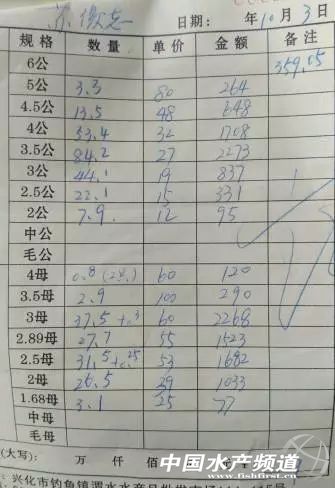 日期: 年10月3日
规格 数量 单价 金额 备注
6公 359.05
5公 3.3 80 264
4.5公 13.5 48 648
4公 53.4 32 1708
3.5公 84.2 27 2273
3公 44.1 19 837
2.5公 22.1 15 331
2公 7.9 12 95
中公
毛公
4母 0.8 60 120
3.5母 2.9 100 290
3母 37.5+0.3 60 2268
2.89母 27.7 55 1523
2.5母 31.5+0.25 53 1682
2母 26.5 39 1033
1.68母 3.1 25 77
中母
毛母
(大写): 万 仟 佰
中国水产频道
www.fishfirst.cn
: 兴化市钓鱼镇